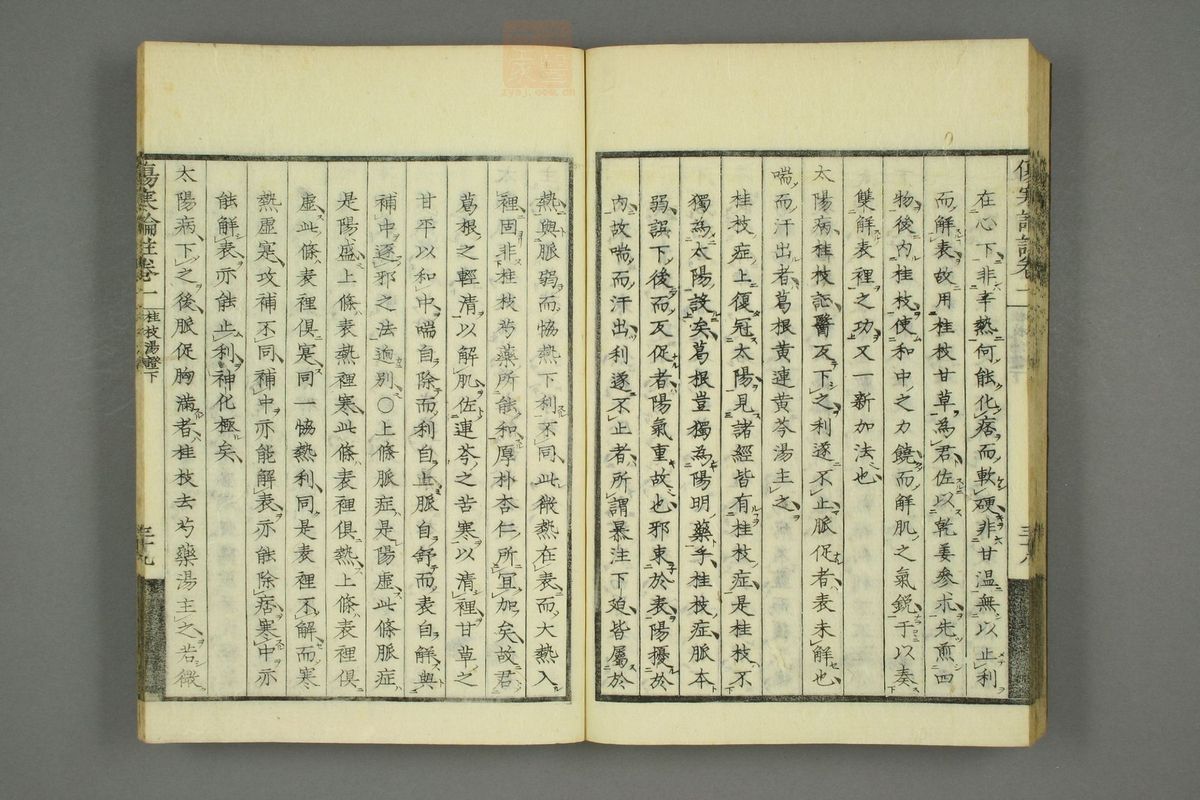 在心下非辛熱何能化痞而軟硬非甘温無以止利
而解表故用桂枝甘草為君佐以乾姜參朮先煎四
物後內桂枝使和中之力饒而解肌之氣鋭于以奏
雙解表裡之功又一新加法也
太陽病桂枝証醫反下之利遂不止脈促者表未解也
喘而汗出者葛根黄連黄芩湯主之
桂枝症上復冠太陽見諸經皆有桂枝症是桂枝不
獨為太陽設矣葛根豈獨為陽明藥乎桂枝症脈本
弱誤下後而反促者陽氣重故也邪束於表陽擾於
內故喘而汗出利遂不止者所謂暴注下廹皆屬於
熱與脈弱而恊熱下利不同此微熱在表而大熱入
裡固非桂枝芍藥所能和厚朴杏仁所宜加矣故君
葛根之輕清以解肌佐連芩之苦寒以清裡甘草之
甘平以和中喘自除而利自止脈自舒而表自解與
補中逐邪之法逈別〇上條脈症是陽虛此條脈症
是陽盛上條表熱裡寒此條表裡俱熱上條表裡俱
虛此條表裡俱寒同一恊熱利同是表裡不解而寒
熱虛寔攻補不同補中亦能解表亦能除痞寒中亦
能解表亦能止利神化極矣
太陽病下之後脈促胸滿者桂枝去芍藥湯主之若微
傷寒論註卷一
桂枝湯證下
三十九